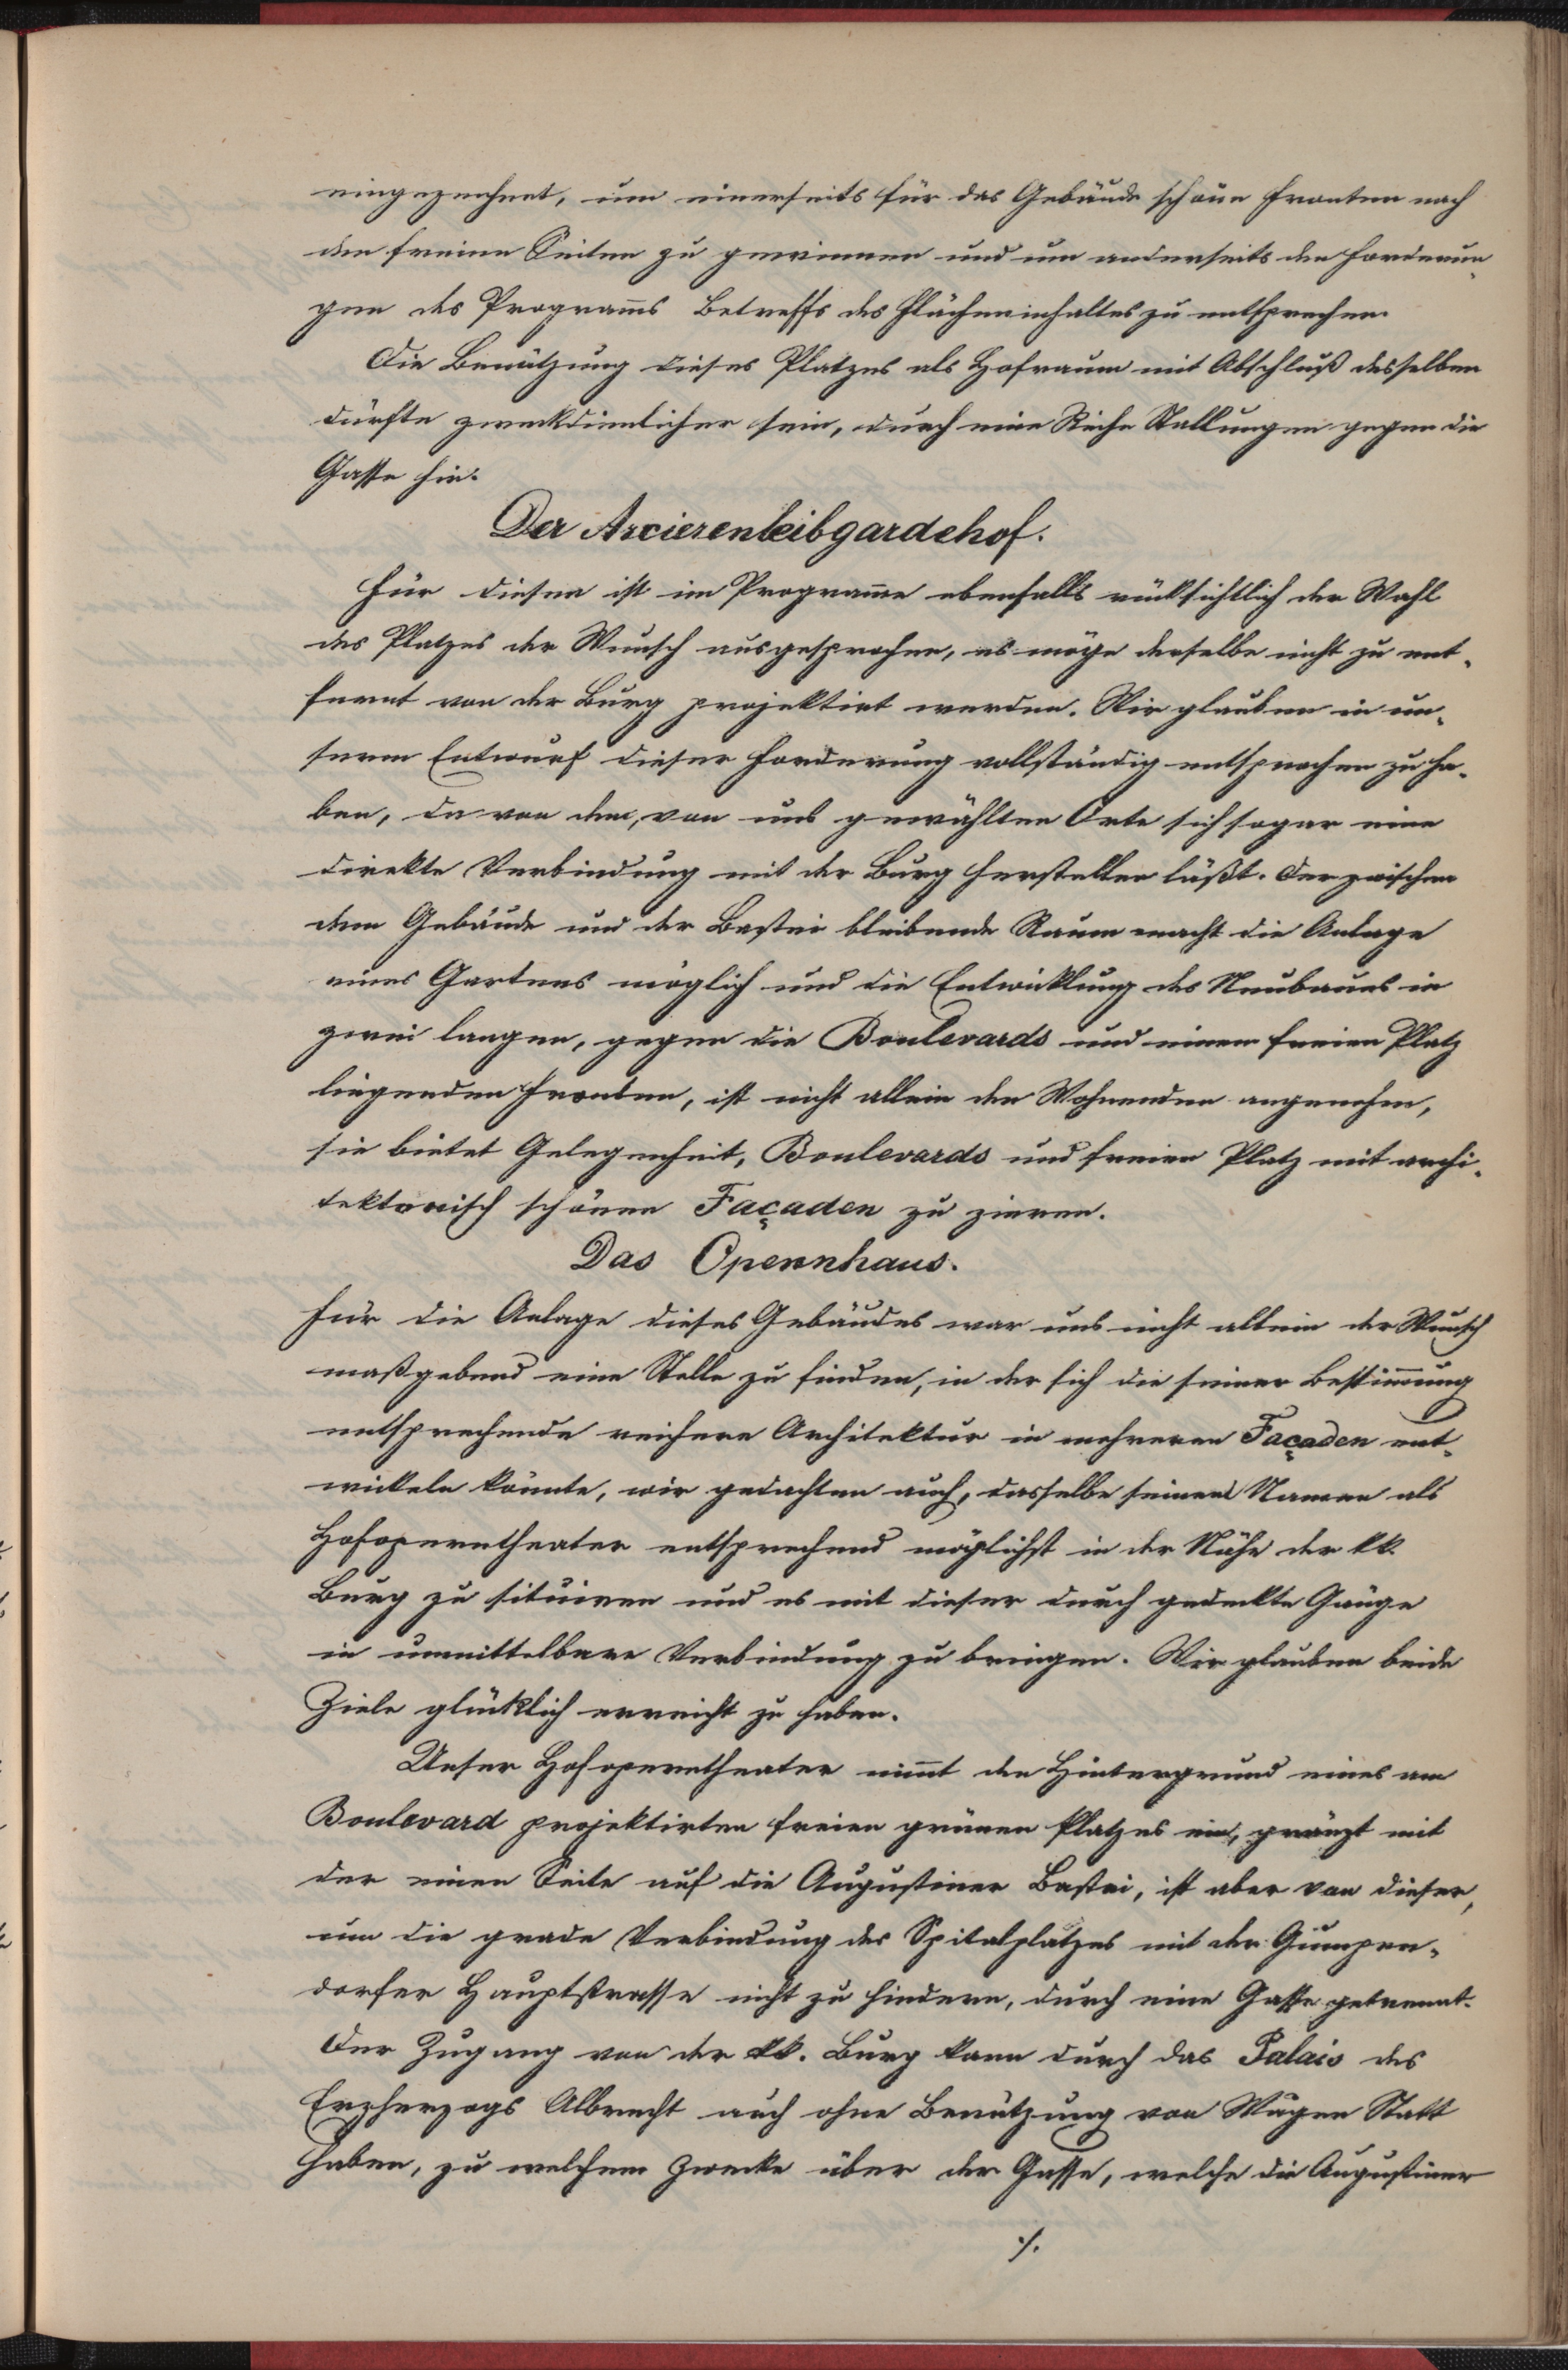 eingezeichnet, um einerseits für das Gebäude schöne Fronten nach
den freien Seiten zu gewinnen und um anderseits den Forderun-
gen des Programms Betreffs des Flächeninhaltes zu entsprechen.
Die Benützung dieses Platzes als Hofraum mit Abschluß desselben
dürfte zweckdienlicher sein, durch eine Reihe Stallungen gegen die
Gasse hin.
Der Arcierenleibgardehof.
Für diesen ist im Programme ebenfalls rücksichtlich der Wahl
des Platzes der Wunsch ausgesprochen, es möge derselbe nicht zu ent-
fernt von der Burg projektirt werden. Wir glauben in un-
serem Entwurf dieser Forderung vollständig entsprochen zu ha-
ben, da von dem, von uns gewählten Orte sich sogar eine
direkte Verbindung mit der Burg herstellen läßt. Der zwischen
dem Gebäude und der Bastei bleibende Raum macht die Anlage
eines Gartens möglich und die Entwicklung des Neubaues in
zwei langen, gegen die Boulevards und einem freien Platz
liegenden Fronten, ist nicht allein den Wohnenden angenehm,
sie bietet Gelegenheit, Boulevards und freien Platz mit archi-
tektonisch schönen Façaden zu zieren.
Das Opernhaus.
Für die Anlage dieses Gebäudes war uns nicht allein der Wunsch
maßgebend eine Stelle zu finden, in der sich die seiner Bestimmung
entsprechende reichere Architektur in mehreren Façaden ent-
wickeln könnte, wir gedachten auch, dasselbe seinem Namen als
Hofoperntheater entsprechend möglichst in der Nähe der kk.
Burg zu situiren und es mit dieser durch gedeckte Gänge
in unmittelbare Verbindung zu bringen. Wir glauben beide
Ziele glücklich erreicht zu haben.
Unser Hofoperntheater nimmt den Hintergrund eines am
Boulevard projektirten freien grünen Platzes ein, gränzt mit
der einen Seite auf die Augustiner Bastei, ist aber von dieser,
um die grade Verbindung des Spitalplatzes mit der Gumpen-
dorfer Hauptstrasse nicht zu hindern, durch eine Gasse getrennt.
Der Zugang von der kk. Burg kann durch das Palais des
Erzherzogs Albrecht auch ohne Benützung von Wägen Statt
haben, zu welchem Zwecke über der Gasse, welche die Augustiner
./.